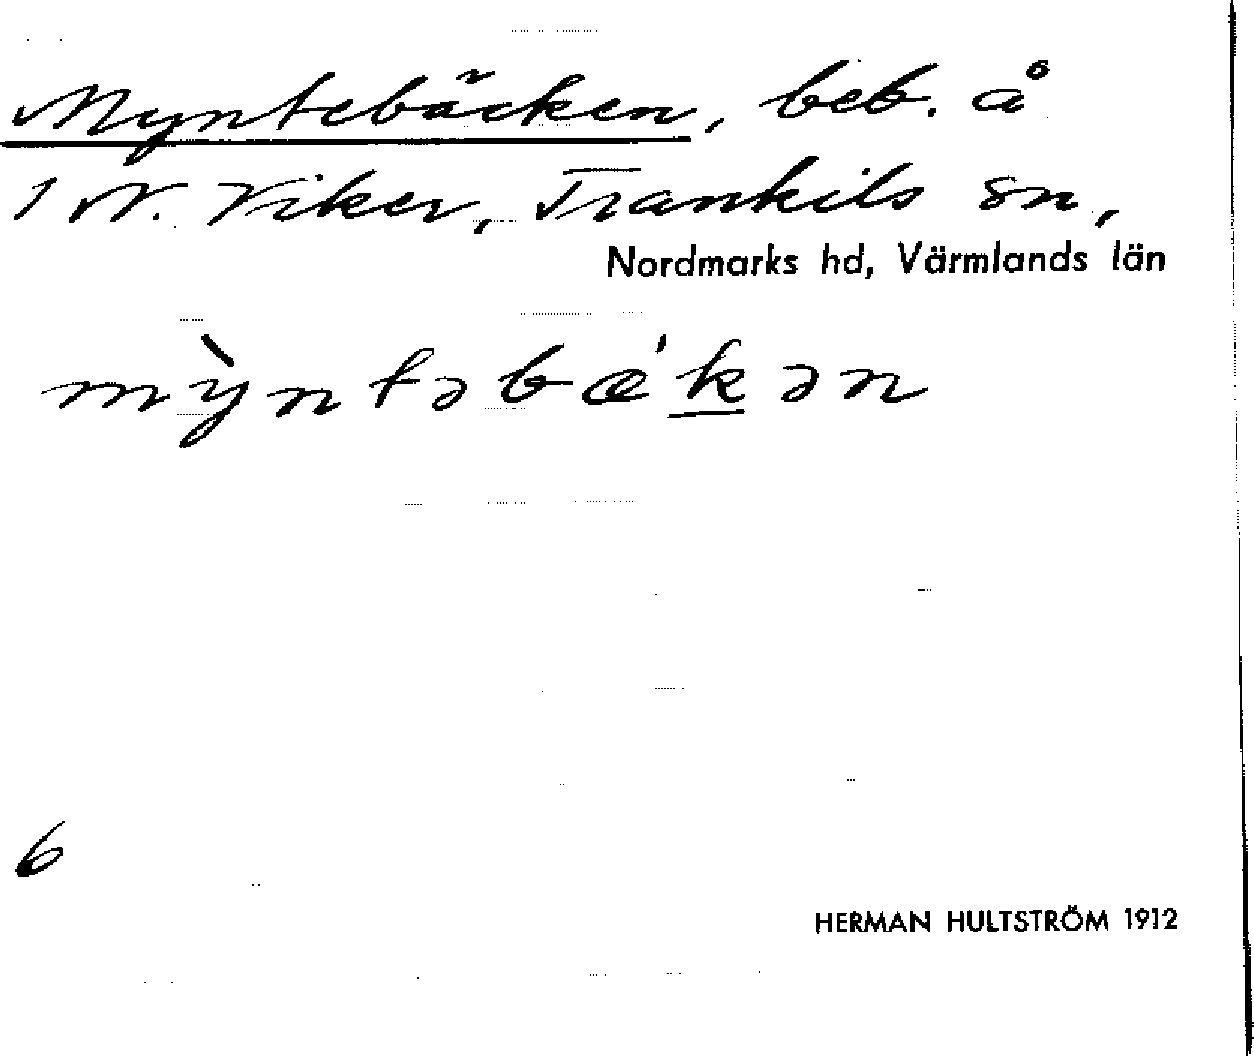 Myntebäcken, beb. å
1 N. Viker, Trankils sn,
Nordmarks hd, Värmlands län
mỳntəbæ'kən
6
HERMAN HULTSTRÖM 1912